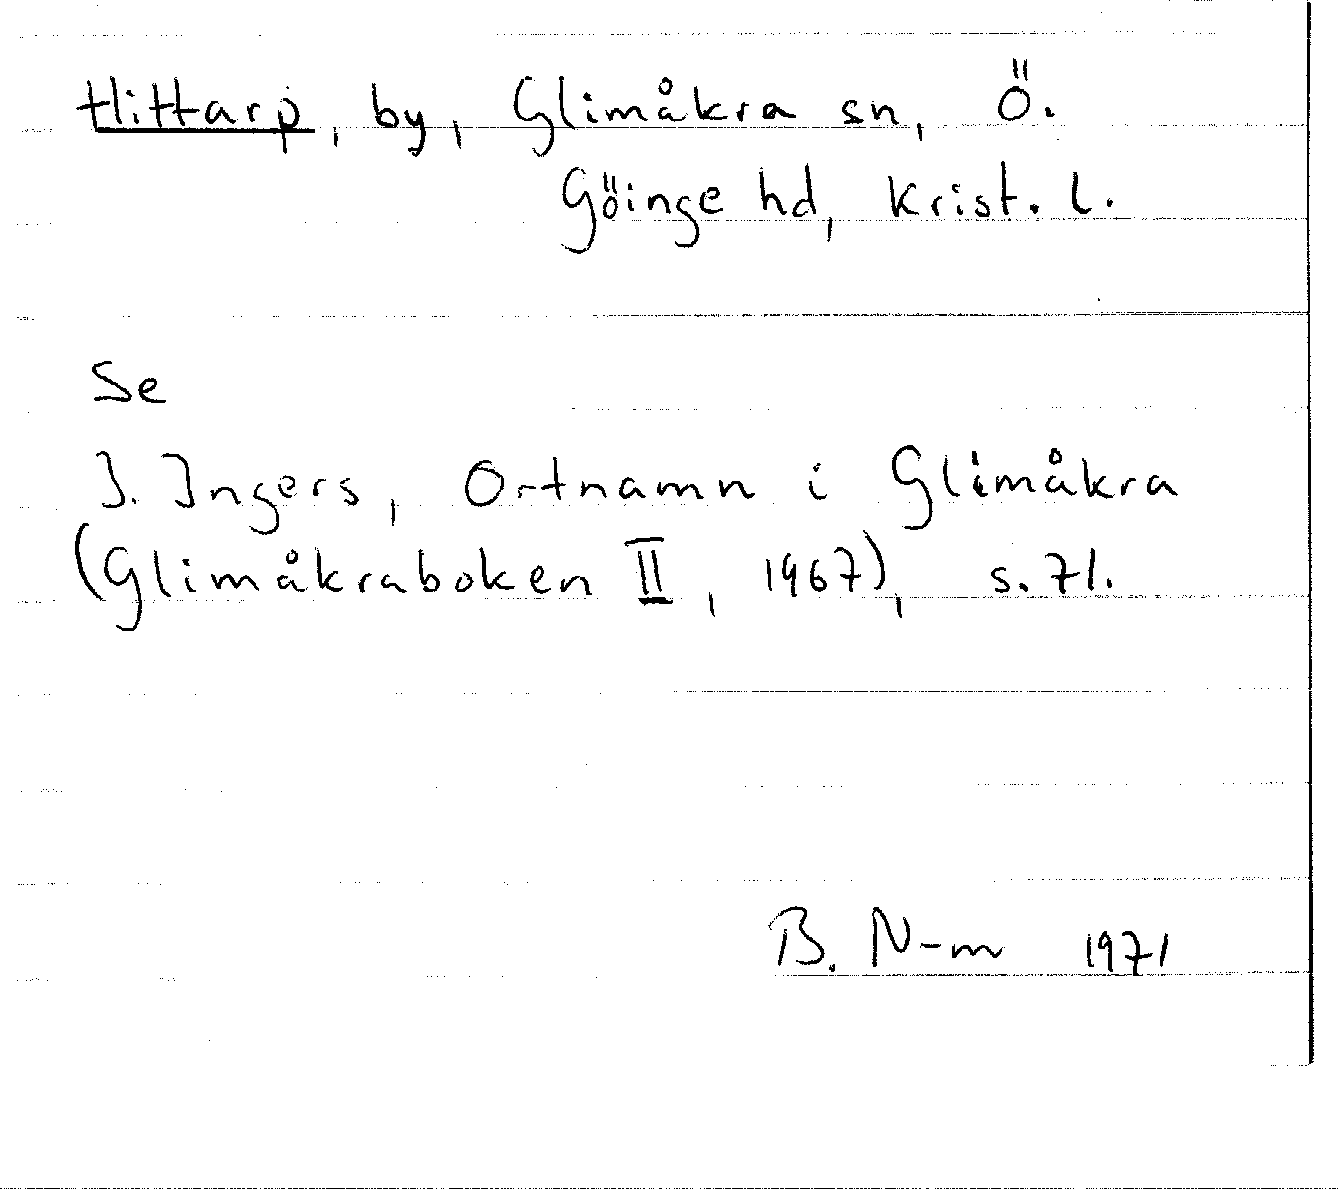 Hittarp, by, Glimåkra sn, Ö.
Göinge hd, Krist. l.
Se
I. Ingers, Ortnamn i Glimåkra
(Glimåkraboken II, 1967), s. 71.
B. N-m 1971